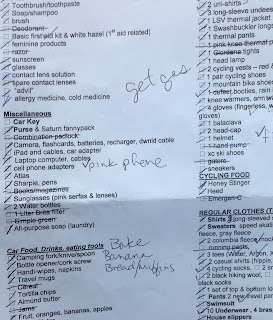 Toothbrush/toothpaste
Soap/shampoo
brush
Deodorant
Basic first aid kit & white hazel (1st aid related)
feminine products
razor
sunscreen
glasses
contact lens solution
spare contact lenses
"advil"
allergy medicine, cold medicine
get gas
Miscellaneous
Car Key
Purse & Saturn fannypack
Combination padlock
Camera, flashcards, batteries, recharger, dwnld cable
iPad and cables, car adapter
Laptop computer, cables
cell phone adapters
pink phone
Atlas
Sharpie, pens
Books/magazines
Sunglasses (pink serfas & lenses)
2 Water bottles
1 Liter Brita filter
Simple green
All-purpose soap (laundry)
Car Food, Drinks, eating tools
Camping fork/knive/spoon
Bottle opener/cork screw
Handi-wipes, napkins
Travel mugs
Cereal
Tortilla chips
Almond butter
Jams
Fruit, oranges, bananas, apples
Bike
Banana
Bread/muffins
2 uni-shirts
3 long-sleeve under
1 LSV thermal jacket
1 Swashbuckler long
1 thermal pants
1 pink knee thermal
tights
1 head lamp
2 cycling vests – red &
1 pair cycling shoes
1 mountain bike shoes
booties, rain
knee warmers, arm w
4 gloves (fingerless, w
gloves)
1 balaclava
2 head-cap
1 helmet
1 hand pump
xc ski shoes
gaters
sneakers
CYCLING FOOD
Honey Stinger
Heed
Emergen-C
REGULAR CLOTHES (T
Shirts 3 long-sleeved
Sweaters speed skat
fleece, gray fleece
2 columbia fleece
running paste,
3 tees (Water, Argon,
(jacket, capri, s
4 cycling socks,
2 black hiking wool,
black
1 set of top & bottom lo
Pants 2 new travel
Swimsuit
10 Underwear, 4 bras
House slippers